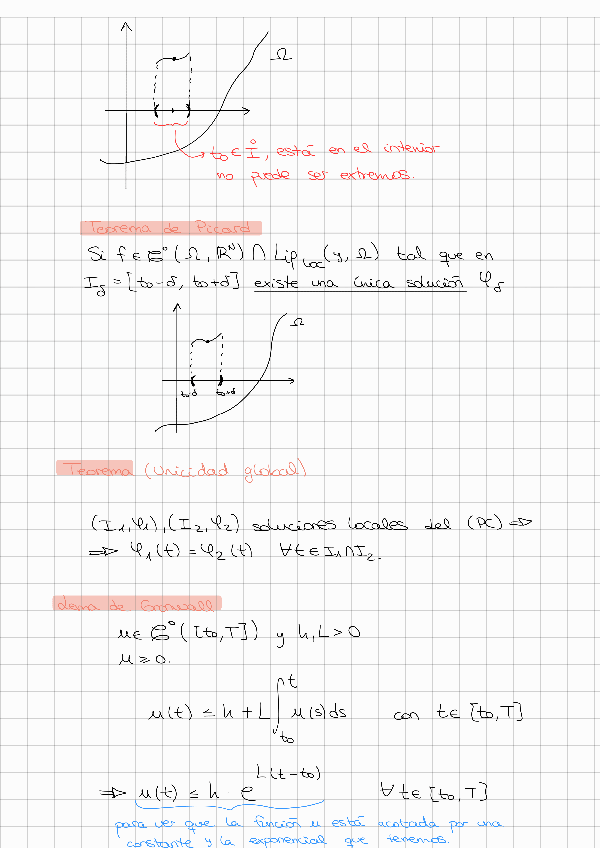 Ω
t₀ ∈ I̊, está en el interior
no puede ser extremos.
Teorema de Picard
Si f ∈ 𝒞⁰(Ω, ℝᴺ) ∩ Lip_loc(y, Ω) tal que en
I_δ = [t₀-δ, t₀+δ] existe una única solución φ_δ
Ω
t₀-δ t₀+δ
Teorema (Unicidad global)
(I₁,φ₁),(I₂,φ₂) soluciones locales del (PC) ⇒
⇒ φ₁(t) = φ₂(t) ∀t ∈ I₁∩I₂.
Lema de Gronwall
u ∈ 𝒞⁰([t₀,T]) y h,L > 0
u ≥ 0.
u(t) ≤ h + L ∫_{t₀}^{t} u(s)ds con t ∈ [t₀,T]
⇒ u(t) ≤ h · e^{L(t-t₀)} ∀t ∈ [t₀,T]
para ver que la función u está acotada por una
constante y la exponencial que tenemos.